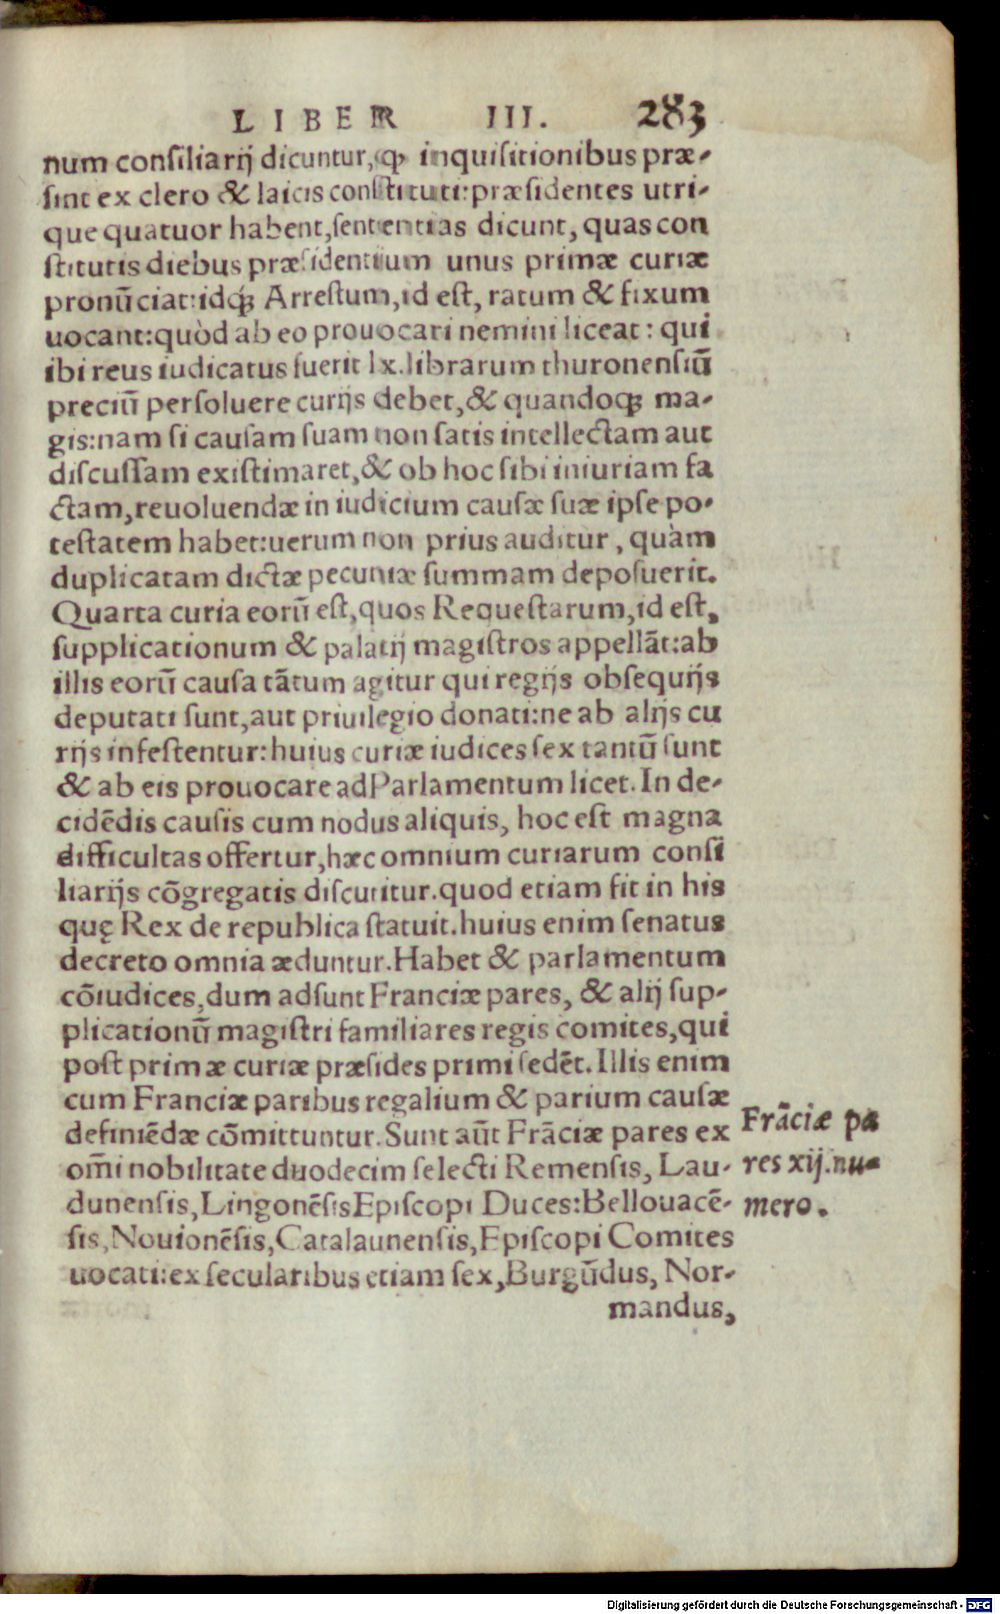 LIBER III. 283
num consiliarij dicuntur, ꝙ inquisitionibus præ-
sint ex clero & laicis constituti: præsidentes utri-
que quatuor habent, sententias dicunt, quas con
stitutis diebus præsidentium unus primæ curiæ
pronũciat: idqꝫ Arrestum, id est, ratum & fixum
uocant: quòd ab eo prouocari nemini liceat: qui
ibi reus iudicatus fuerit lx. librarum thuronensiũ
preciũ persoluere curijs debet, & quandoqꝫ ma-
gis: nam si causam suam non satis intellectam aut
discussam existimaret, & ob hoc sibi iniuriam fa
ctam, reuoluendæ in iudicium causæ suæ ipse po-
testatem habet: uerum non prius auditur, quàm
duplicatam dictæ pecuniæ summam deposuerit.
Quarta curia eorũ est, quos Requestarum, id est,
supplicationum & palatij magistros appellãt: ab
illis eorũ causa tãtum agitur qui regijs obsequijs
deputati sunt, aut priuilegio donati: ne ab alijs cu
rijs infestentur: huius curiæ iudices sex tantũ sunt
& ab eis prouocare ad Parlamentum licet. In de-
cidẽdis causis cum nodus aliquis, hoc est magna
difficultas offertur, hæc omnium curiarum consi
liarijs cõgregatis discutitur. quod etiam fit in his
quę Rex de republica statuit. huius enim senatus
decreto omnia æduntur. Habet & parlamentum
cõiudices, dum adsunt Franciæ pares, & alij sup-
plicationũ magistri familiares regis comites, qui
post primæ curiæ præsides primi sedẽt. Illis enim
cum Franciæ paribus regalium & parium causæ
definiẽdæ cõmittuntur. Sunt aũt Frãciæ pares ex
om̃i nobilitate duodecim selecti Remensis, Lau-
dunensis, Lingonẽsis Episcopi Duces: Bellouacẽ-
sis, Nouionẽsis, Catalaunensis, Episcopi Comites
uocati: ex secularibus etiam sex, Burgũdus, Nor-
mandus,
Frãciæ pa
res xij. nu-
mero.
Digitalisierung gefördert durch die Deutsche Forschungsgemeinschaft - DFG